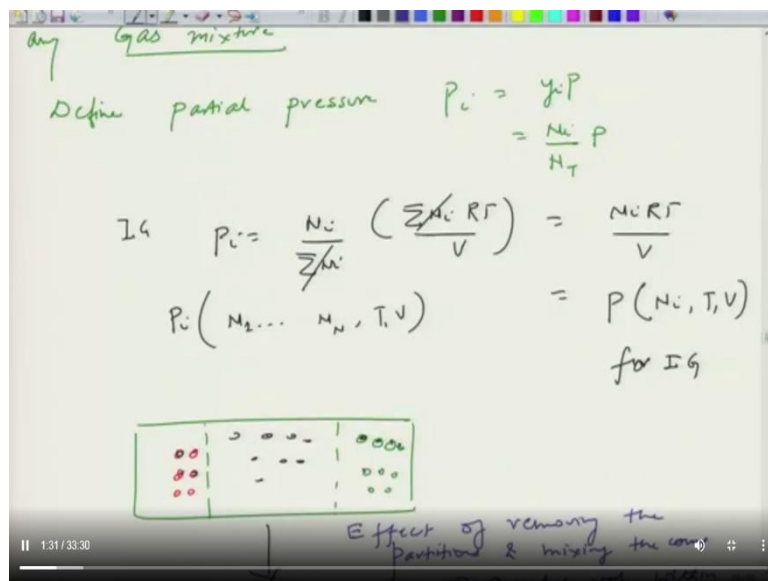 any Gas mixture
Define partial pressure Pi = yiP
= Ni/NT P
IG Pi = Ni/ΣNi (ΣNi RT/V) = NiRT/V
Pi(N1... NN, T, V) = P(Ni, T, V)
for IG
Effect of removing the
partitions & mixing the
1:31 / 33:30